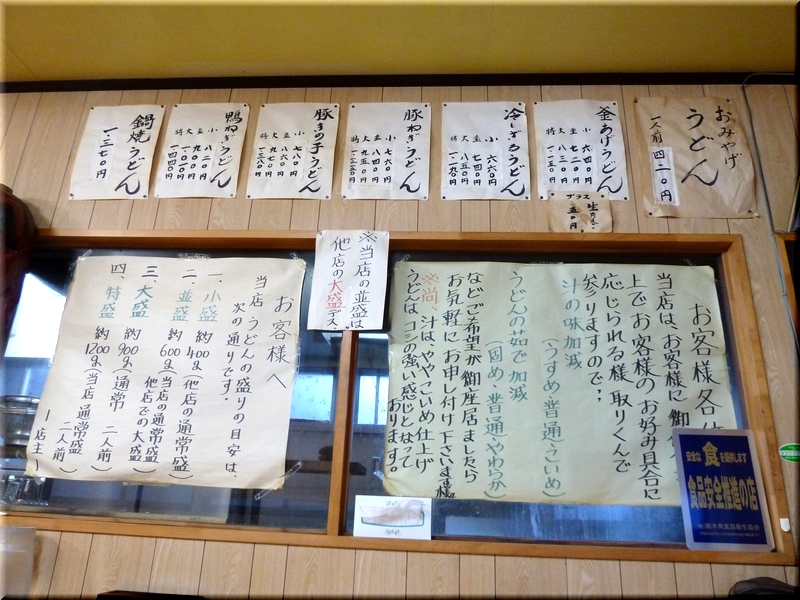 おみやげ
うどん
一人前 四二〇円
釜あげうどん
小 六四〇円
並 七二〇円
大 八三〇円
プラス
冷しざるうどん
小 六六〇円
並 七四〇円
大 八五〇円
特 一、一九〇円
豚ねぎうどん
小 七六〇円
並 八四〇円
大 九五〇円
豚きの子うどん
小 七八〇円
並 八六〇円
大 九七〇円
鴨ねぎうどん
小 八二〇円
並 九〇〇円
鍋焼うどん
一、三七〇円
お客様各位
当店は、お客様に
上でお客様のお好み具合に
応じられる様取りくんで
参りますので、
汁の味加減
(うすめ・普通・こいめ)
うどんの茹で加減
(固め・普通・やわらか)
などご希望が御座居ましたら
お気軽にお申し付け下さいます様
※尚、汁は、ややこいめ仕上げ
うどんは、コシの強い感じとなって
おります。
※当店の並盛は、
他店の大盛デス。
お客様へ
当店うどんの盛りの目安は、
次の通りです。
一、小盛 約400g(他店の通常盛)
二、並盛 約600g(当店の通常盛
他店での大盛)
三、大盛 約900g(通常 二人前)
四、特盛 約1200g(当店通常盛 二人前)
(店主)
安全な食を推進します
食品安全推進の店
栃木県食品衛生協会